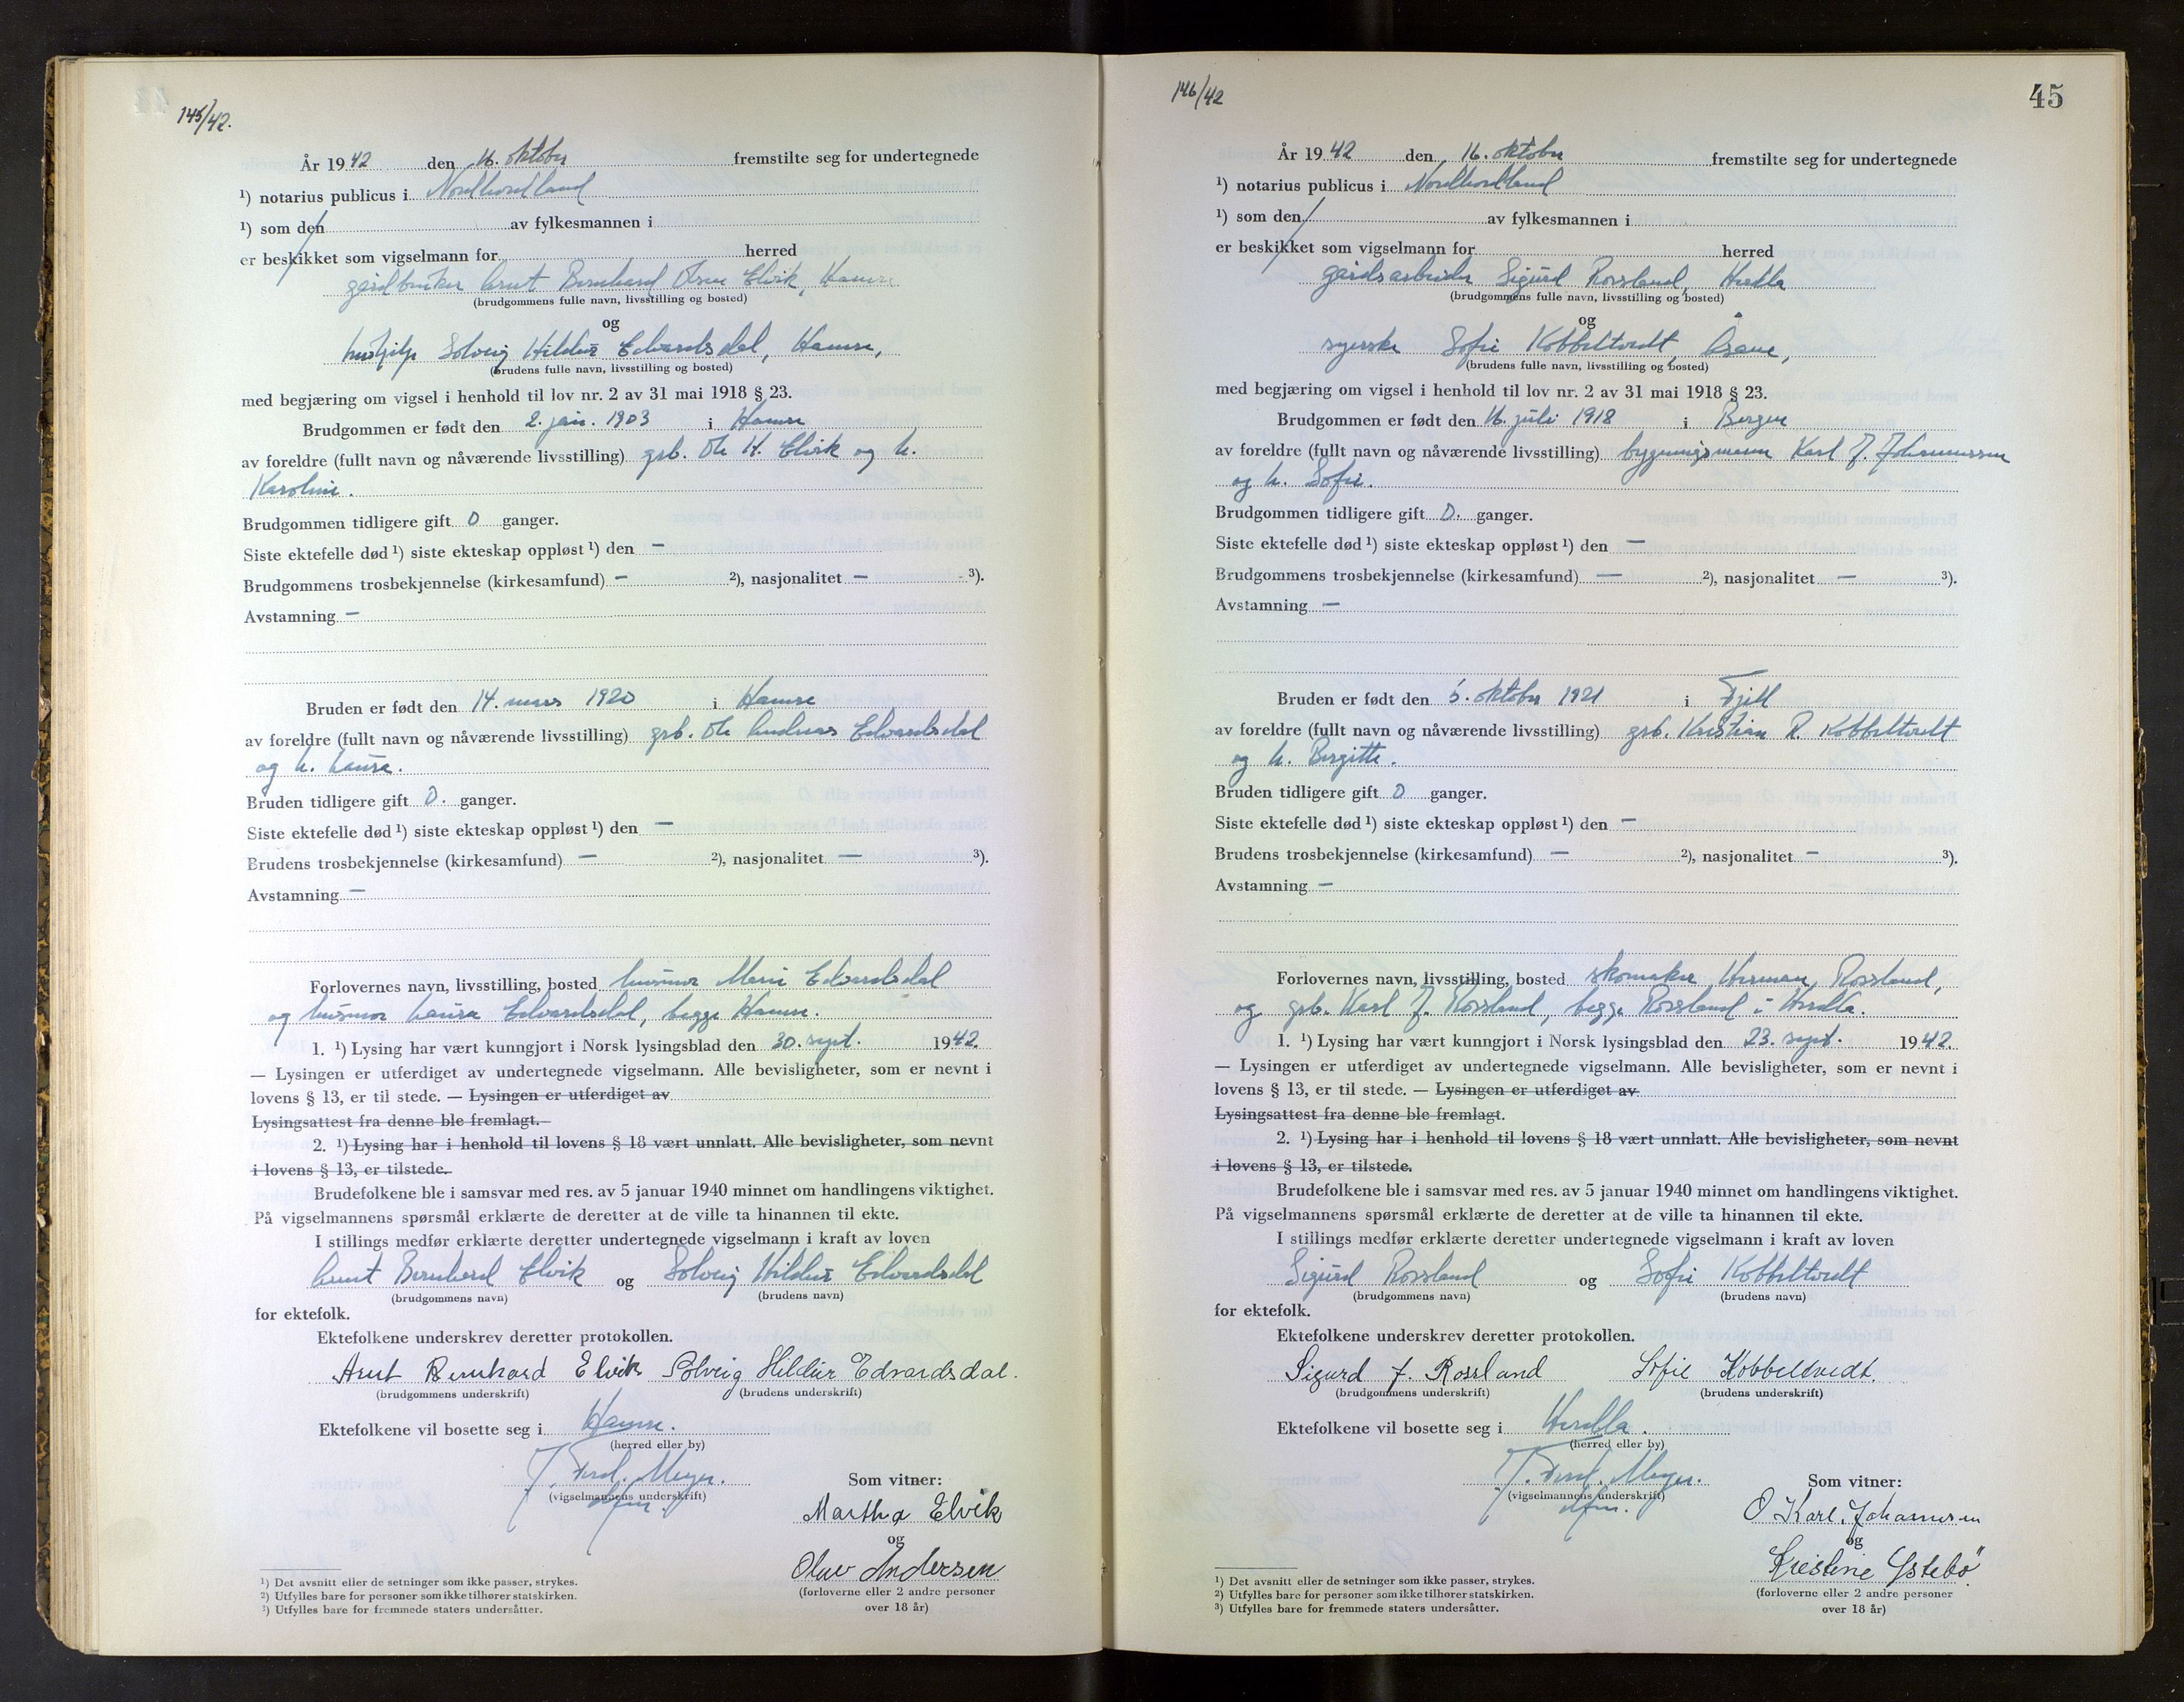 145/42.
År 1942 den 16. oktober fremstilte seg for undertegnede
¹) notarius publicus i Nordhordland
¹) som den / av fylkesmannen i
er beskikket som vigselmann for herred
gårdbruker Arnt Bernhard Olsen Elvik, Hamre
(brudgommens fulle navn, livsstilling og bosted)
og
hushjelp Solveig Hildur Edvardsdal, Hamre,
(brudens fulle navn, livsstilling og bosted)
med begjæring om vigsel i henhold til lov nr. 2 av 31 mai 1918 § 23.
Brudgommen er født den 2. jan. 1903 i Hamre
av foreldre (fullt navn og nåværende livsstilling) grb. Ole K. Elvik og h.
Karoline.
Brudgommen tidligere gift 0 ganger.
Siste ektefelle død ¹) siste ekteskap oppløst ¹) den —
Brudgommens trosbekjennelse (kirkesamfund) — ²), nasjonalitet — ³).
Avstamning —
Bruden er født den 14. mars 1920 i Hamre
av foreldre (fullt navn og nåværende livsstilling) grb. Ole Andreas Edvardsdal
og h. Laura.
Bruden tidligere gift 0. ganger.
Siste ektefelle død ¹) siste ekteskap oppløst ¹) den —
Brudens trosbekjennelse (kirkesamfund) — ²), nasjonalitet — ³).
Avstamning —
Forlovernes navn, livsstilling, bosted husmor Marie Edvardsdal
og husmor Laura Edvardsdal, begge Hamre.
1. ¹) Lysing har vært kunngjort i Norsk lysingsblad den 30. sept. 1942.
— Lysingen er utferdiget av undertegnede vigselmann. Alle bevisligheter, som er nevnt i
lovens § 13, er til stede. — Lysingen er utferdiget av
Lysingsattest fra denne ble fremlagt. —
2. ¹) Lysing har i henhold til lovens § 18 vært unnlatt. Alle bevisligheter, som nevnt
i lovens § 13, er tilstede.
Brudefolkene ble i samsvar med res. av 5 januar 1940 minnet om handlingens viktighet.
På vigselmannens spørsmål erklærte de deretter at de ville ta hinannen til ekte.
I stillings medfør erklærte deretter undertegnede vigselmann i kraft av loven
Arnt Bernhard Elvik og Solveig Hildur Edvardsdal
(brudgommens navn) (brudens navn)
for ektefolk.
Ektefolkene underskrev deretter protokollen.
Arnt Bernhard Elvik Solveig Hildur Edvardsdal.
(brudgommens underskrift) (brudens underskrift)
Ektefolkene vil bosette seg i Hamre.
(herred eller by)
J. Ferd. Meyer.
(vigselmannens underskrift)
Som vitner:
Martha Elvik
og
Olav Andersen
(forloverne eller 2 andre personer
over 18 år)
¹) Det avsnitt eller de setninger som ikke passer, strykes.
²) Utfylles bare for personer som ikke tilhører statskirken.
³) Utfylles bare for fremmede staters undersåtter.
146/42
45
År 1942 den 16. oktober fremstilte seg for undertegnede
¹) notarius publicus i Nordhordland
¹) som den / av fylkesmannen i
er beskikket som vigselmann for herred
gårdsarbeider Sigurd Rossland, Herdla
(brudgommens fulle navn, livsstilling og bosted)
og
syerske Sofie Kobbeltvedt, Åsane,
(brudens fulle navn, livsstilling og bosted)
med begjæring om vigsel i henhold til lov nr. 2 av 31 mai 1918 § 23.
Brudgommen er født den 16. juli 1918 i Bergen
av foreldre (fullt navn og nåværende livsstilling) bygningsmann Karl J. Johannessen
og h. Sofie.
Brudgommen tidligere gift 0. ganger.
Siste ektefelle død ¹) siste ekteskap oppløst ¹) den —
Brudgommens trosbekjennelse (kirkesamfund) — ²), nasjonalitet — ³).
Avstamning —
Bruden er født den 5. oktober 1921 i Fjell
av foreldre (fullt navn og nåværende livsstilling) grb. Kristian R. Kobbeltvedt
og h. Bergitte.
Bruden tidligere gift 0 ganger.
Siste ektefelle død ¹) siste ekteskap oppløst ¹) den —
Brudens trosbekjennelse (kirkesamfund) — ²), nasjonalitet — ³).
Avstamning —
Forlovernes navn, livsstilling, bosted skomaker Herman Rossland,
og grb. Karl J. Rossland, begge Rossland i Herdla.
1. ¹) Lysing har vært kunngjort i Norsk lysingsblad den 23. sept. 1942.
— Lysingen er utferdiget av undertegnede vigselmann. Alle bevisligheter, som er nevnt i
lovens § 13, er til stede. — Lysingen er utferdiget av
Lysingsattest fra denne ble fremlagt.
2. ¹) Lysing har i henhold til lovens § 18 vært unnlatt. Alle bevisligheter, som nevnt
i lovens § 13, er tilstede.
Brudefolkene ble i samsvar med res. av 5 januar 1940 minnet om handlingens viktighet.
På vigselmannens spørsmål erklærte de deretter at de ville ta hinannen til ekte.
I stillings medfør erklærte deretter undertegnede vigselmann i kraft av loven
Sigurd Rossland og Sofie Kobbeltvedt
(brudgommens navn) (brudens navn)
for ektefolk.
Ektefolkene underskrev deretter protokollen.
Sigurd J. Rossland Sofie Kobbeltvedt.
(brudgommens underskrift) (brudens underskrift)
Ektefolkene vil bosette seg i Herdla.
(herred eller by)
J. Ferd. Meyer.
(vigselmannens underskrift)
Som vitner:
O Karl. Johannesen
og
Kristine Ystebö
(forloverne eller 2 andre personer
over 18 år)
¹) Det avsnitt eller de setninger som ikke passer, strykes.
²) Utfylles bare for personer som ikke tilhører statskirken.
³) Utfylles bare for fremmede staters undersåtter.